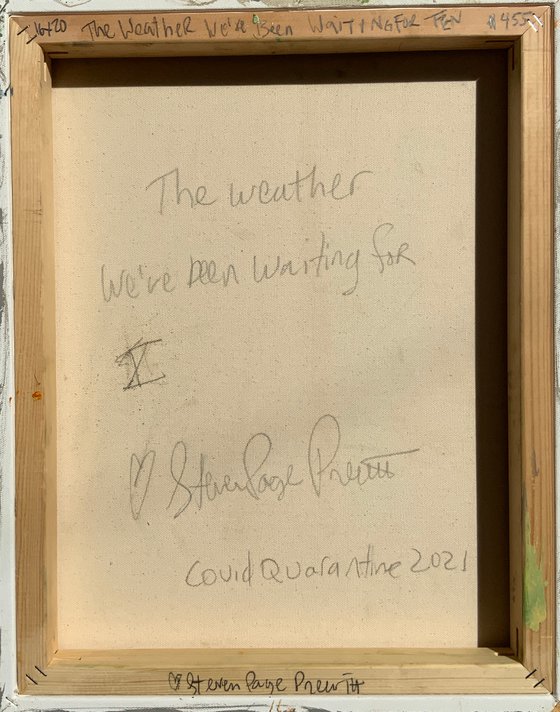 16x20 The Weather We've Been Waiting For TEN $455
The weather
We've been waiting for
X
Steven Page Prewitt
Covid Quarantine 2021
Steven Page Prewitt